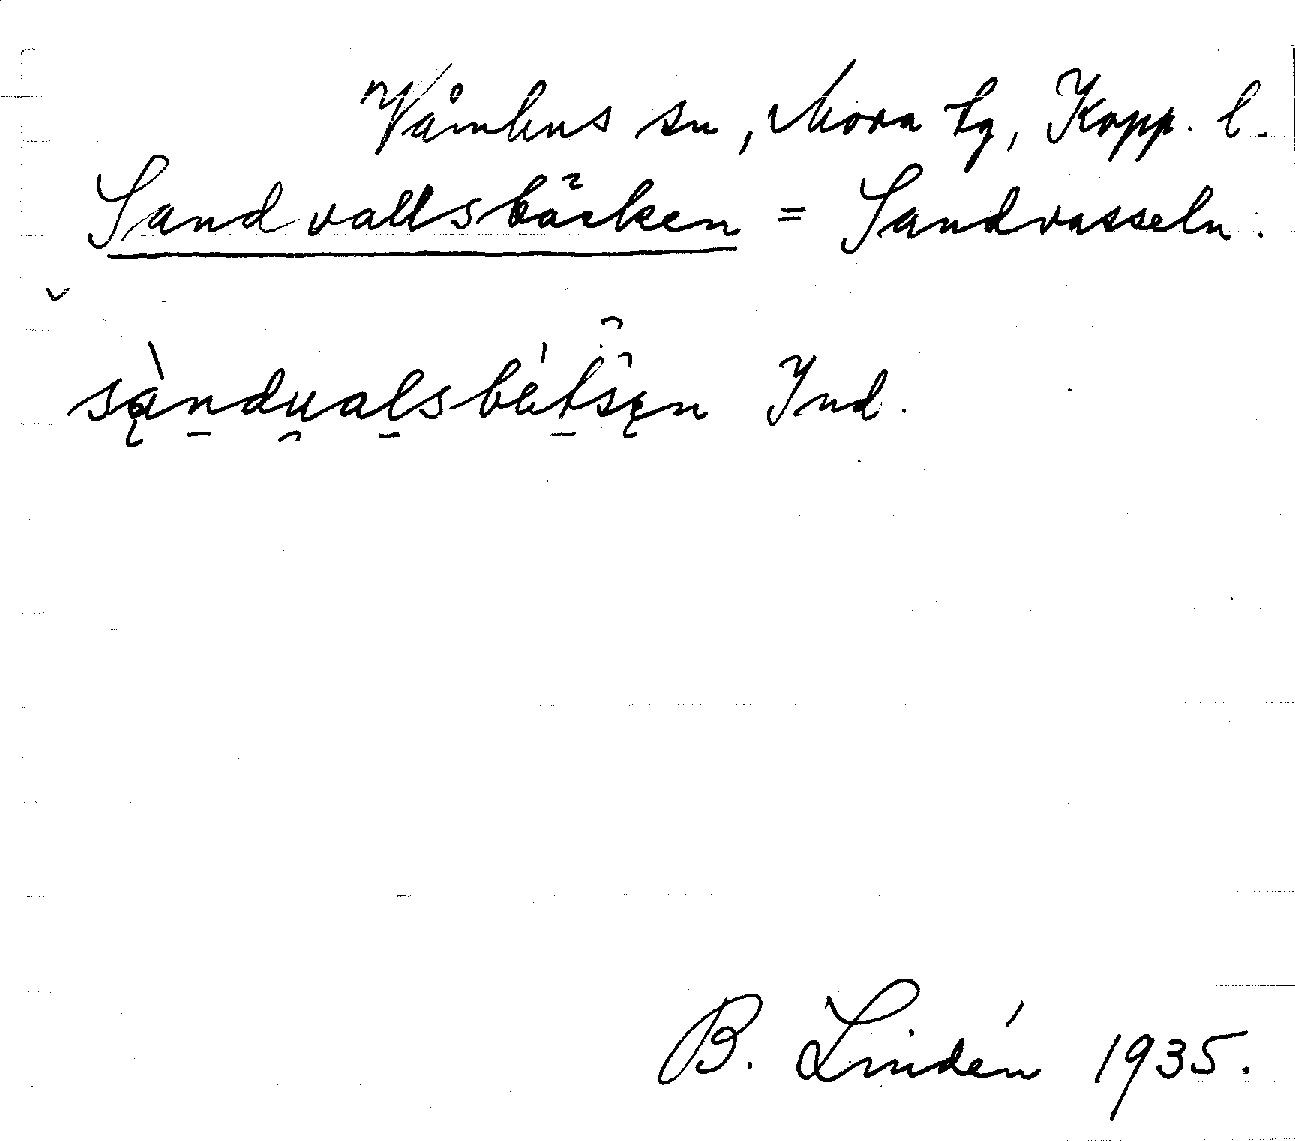 Våmhus sn, Mora tg, Kopp. l.
Sandvallsbäcken = Sandvasseln.
Ind.
B. Lindén 1935.